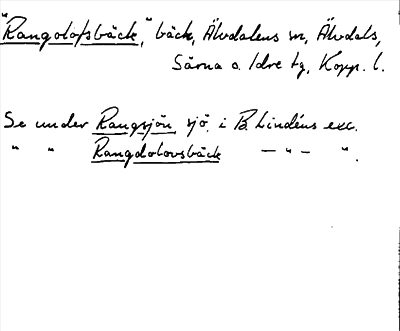 "Rangolofsbäck," bäck, Älvdalens sn, Älvdals,
Särna o. Idre tg, Kopp. l.
Se under Rangsjön, sjö. i B. Lindéns exc.
" " Rangdolovsbäck — " — ".